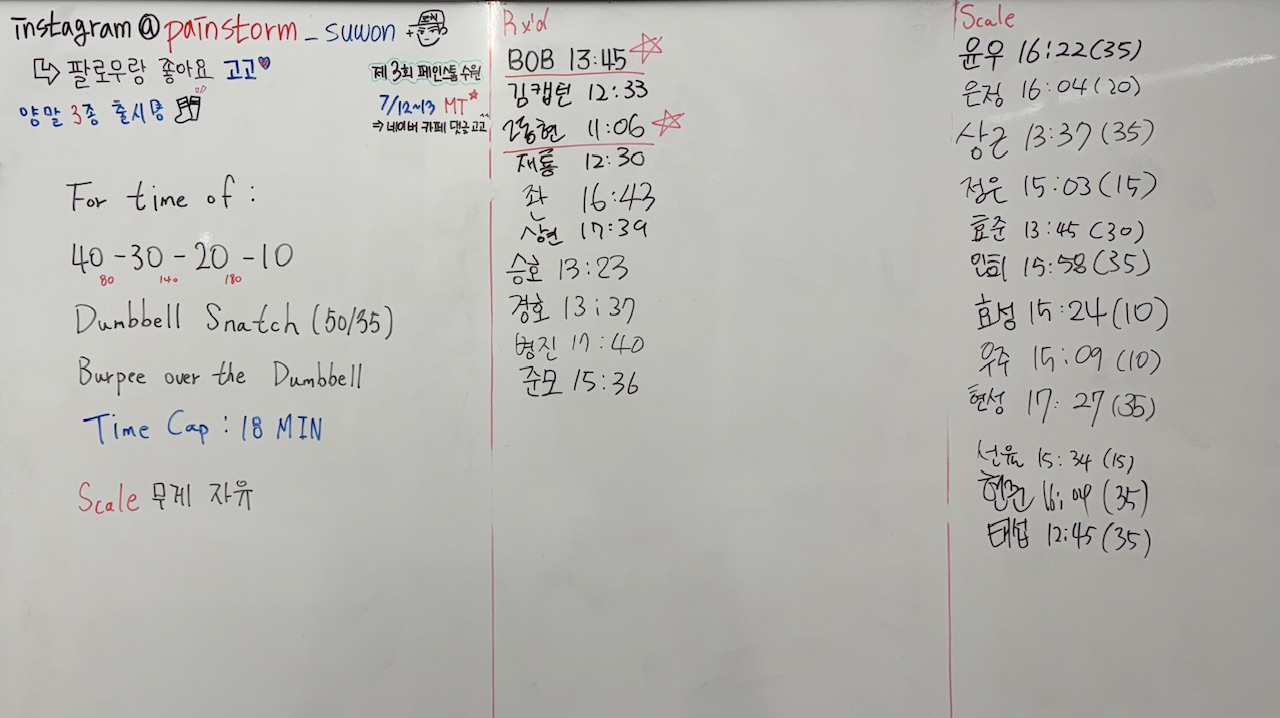 instagram@painstorm_suwon
팔로우랑 좋아요 고고
양말 3종 출시중
제3회 페인스톰 수원
7/12~13 MT
⇒ 네이버 카페 댓글 고고
For time of :
40 - 30 - 20 - 10
80 140 180
Dumbbell Snatch (50/35)
Burpee over the Dumbbell
Time Cap : 18 MIN
Scale 무게 자유
Rx'd
BOB 13:45
김캡틴 12:33
2동현 11:06
재룡 12:30
좌 16:43
상현 17:39
승호 13:23
경호 13:37
병진 17:40
준모 15:36
Scale
윤우 16:22(35)
은정 16:04(20)
상근 13:37(35)
정은 15:03(15)
효준 13:45(30)
인희 15:58(35)
효성 15:24(10)
우주 15:09(10)
현성 17:27(35)
선율 15:34(15)
현준 16:04(35)
태섭 12:45(35)